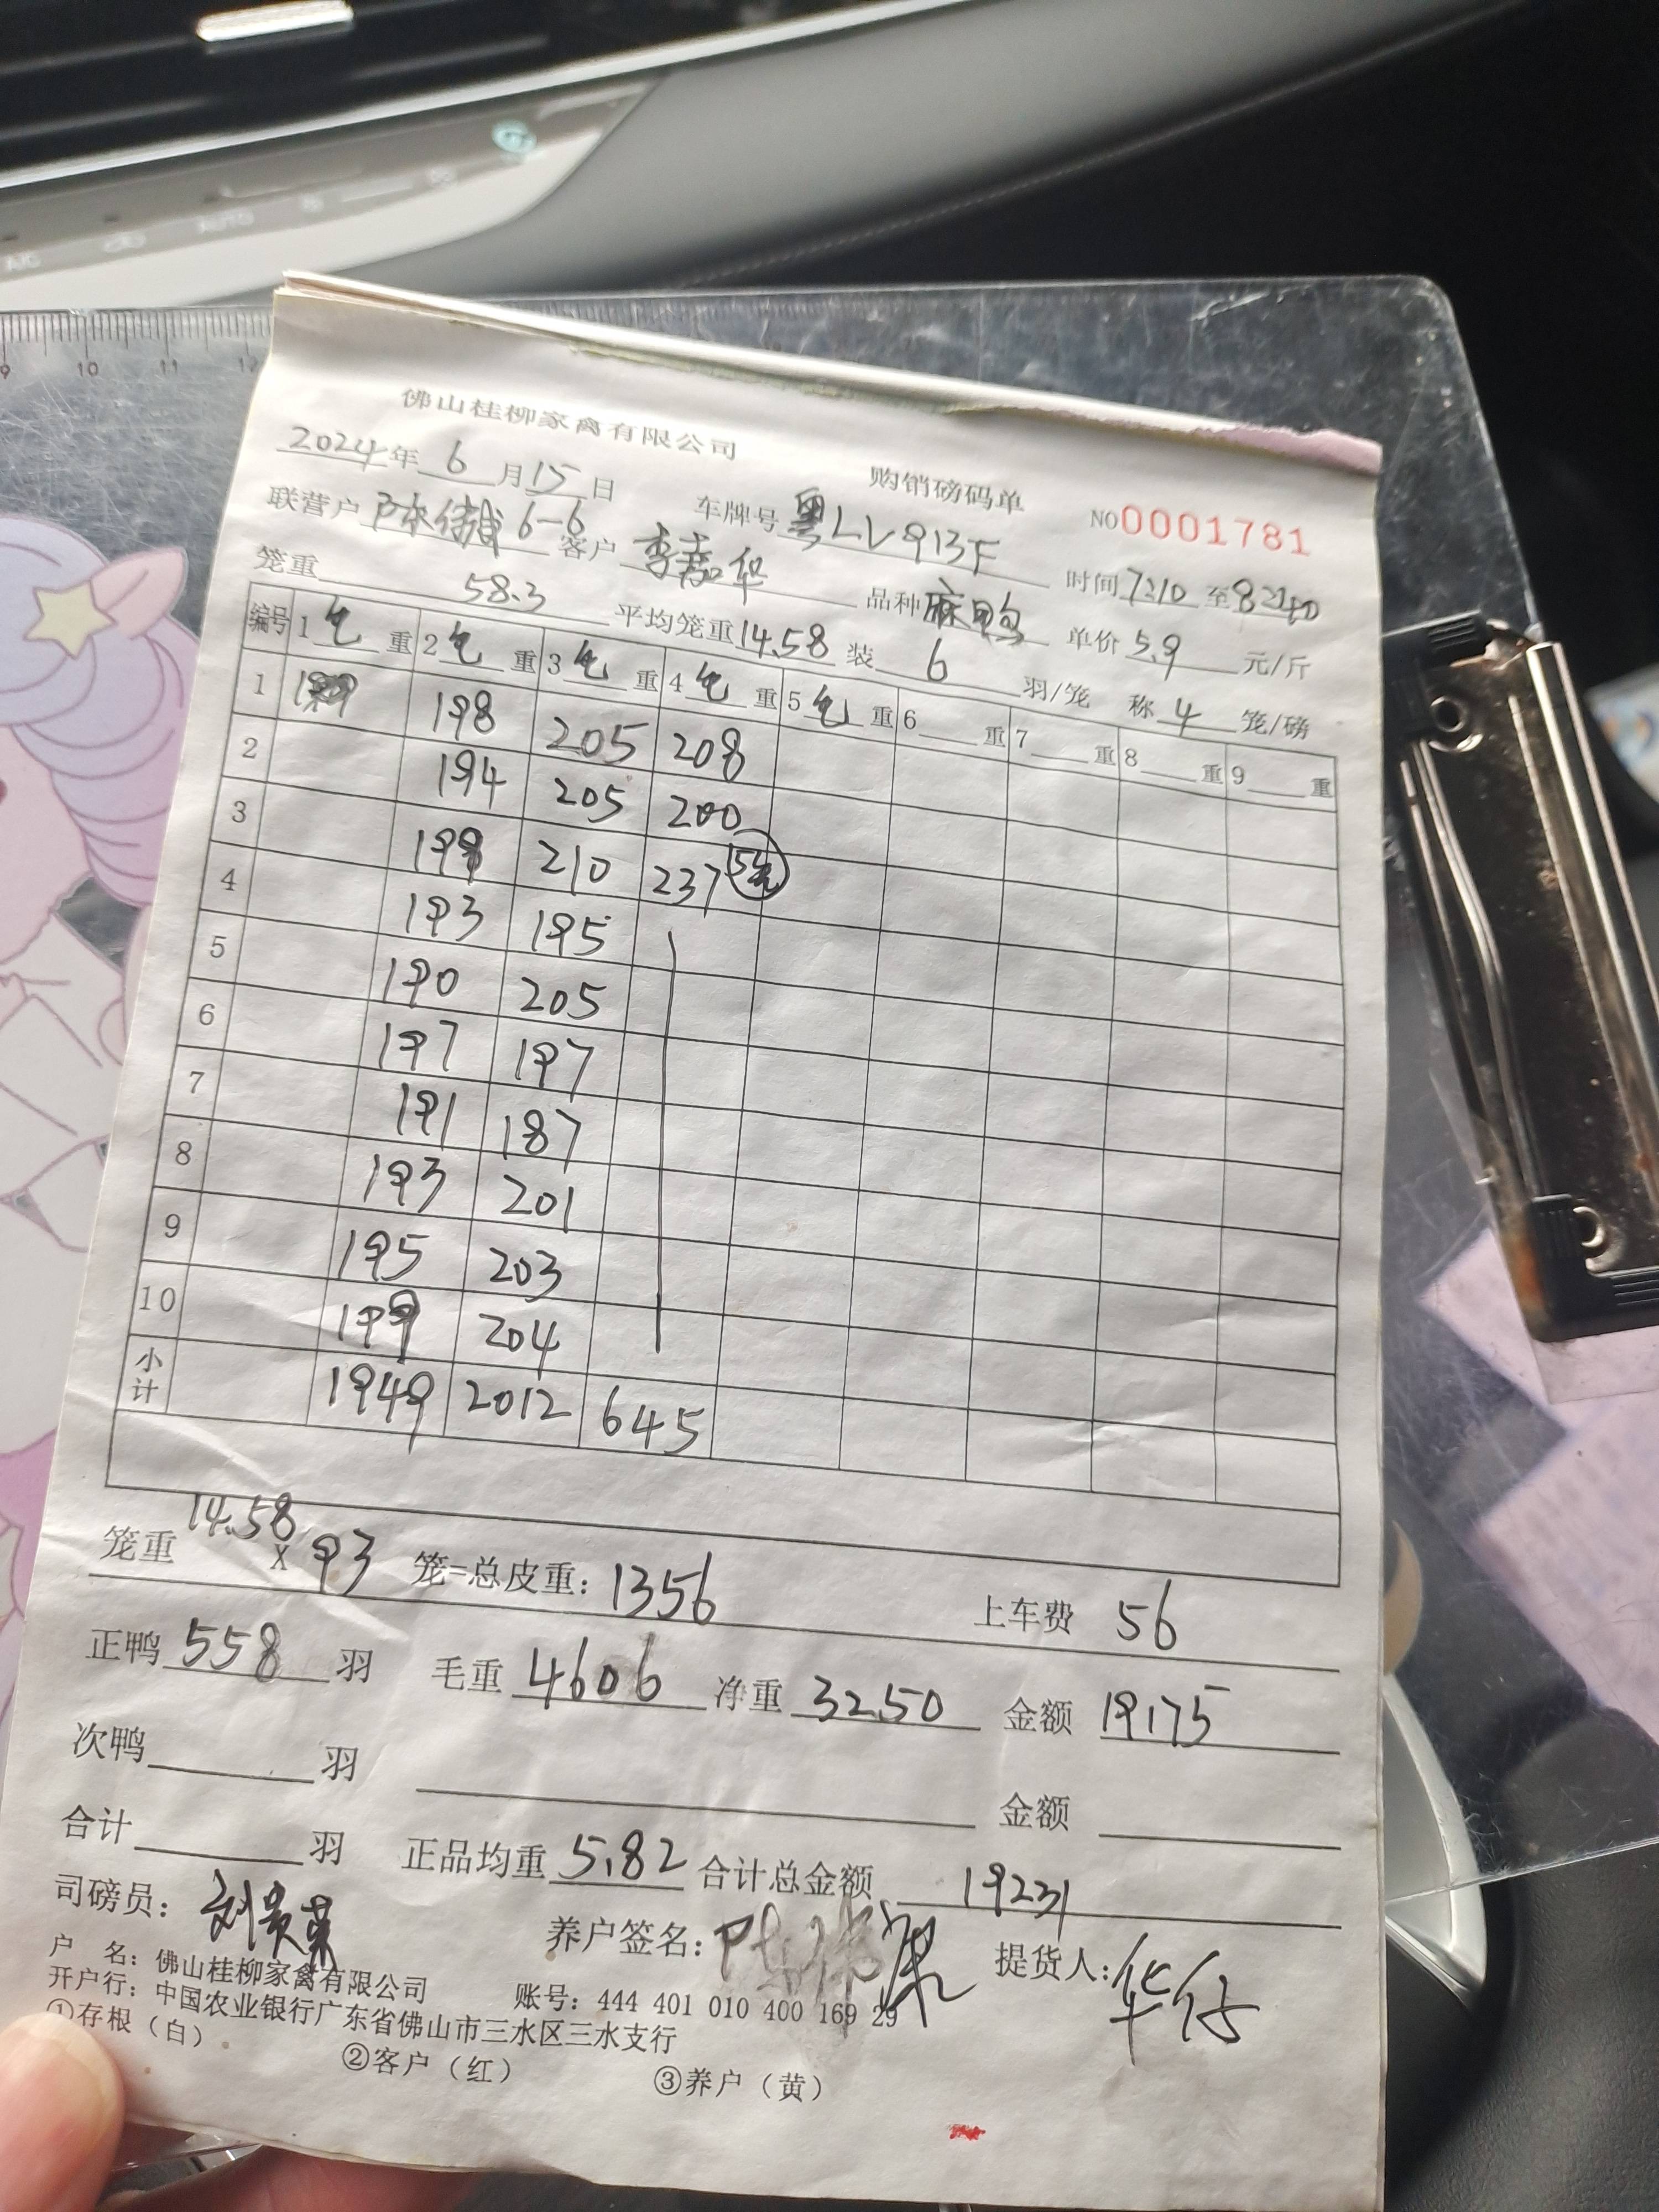 9 10 11 12
A/C AUTO
佛山桂柳家禽有限公司 购销磅码单 NO 0001781
2024年 6月15日 车牌号 粤LV913F 时间 7:10 至 8:40
联营户 陈 6-6 客户 李嘉华 品种 麻鸭 单价 5.9 元/斤
笼重 58.3 平均笼重 14.58 装 6 羽/笼 称 4 笼/磅
编号 1 毛 重 2 毛 重 3 毛 重 4 毛 重 5 毛 重 6 重 7 重 8 重 9 重
1 198 205 208
2 194 205 200
3 199 210 237
4 193 195
5 190 205
6 197 197
7 191 187
8 193 201
9 195 203
10 199 204
小计 1949 2012 645
笼重 14.58 X 93 笼=总皮重: 1356 上车费 56
正鸭 558 羽 毛重 4606 净重 3250 金额 19175
次鸭 羽 金额
合计 羽 正品均重 5.82 合计总金额 19231
司磅员: 刘贵荣 养户签名: 提货人: 华仔
户 名: 佛山桂柳家禽有限公司 账号: 444 401 010 400 169 29
开户行: 中国农业银行广东省佛山市三水区三水支行
①存根（白） ②客户（红） ③养户（黄）